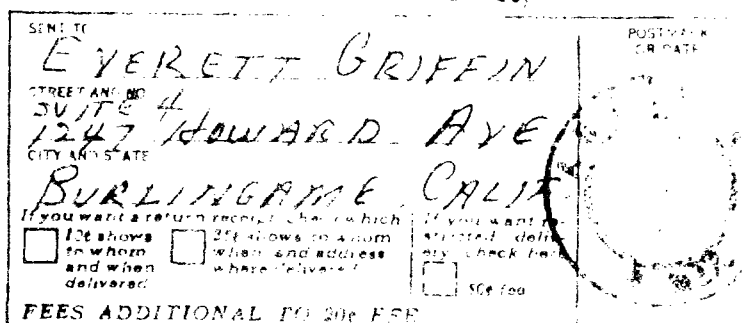 SENT TO
EVERETT GRIFFIN
POSTMARK
OR DATE
STREET AND NO.
SUITE 4
1247 HOWARD AVE
CITY AND STATE
BURLINGAME CALIF
If you want a return receipt, check which
10¢ shows
to whom
and when
delivered
35¢ shows to whom
when, and address
where delivered
If you want re-
stricted deliv-
ery, check here
50¢ fee
FEES ADDITIONAL TO 20¢ FEE